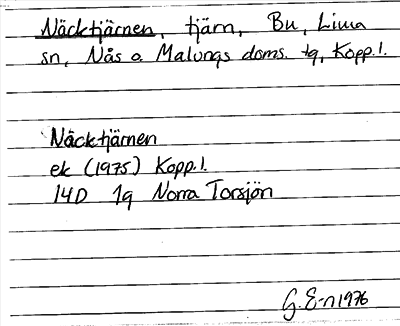 Näcktjärnen, tjärn, Bu, Lima
sn, Nås o. Malungs doms. tg, Kopp.l.
Näcktjärnen
ek (1975) Kopp.l.
14D 1g Norra Torsjön
G.E-n 1976